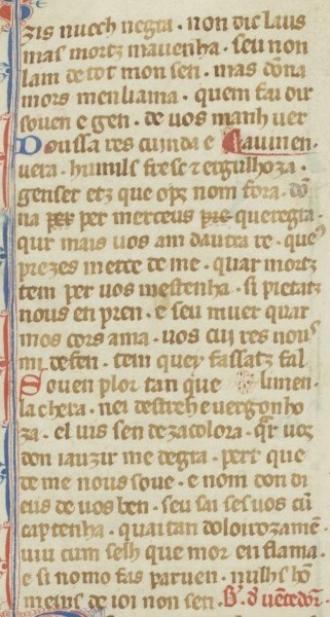 zis nuech negra · non dic laus
mas mortz mauenha · seu non
lam de tot mon sen · mas dõna
mors menliama · quem fau dir
souen e gen · de uos manh uer
Doussa res cuinda e Cauinen ·
uera · humils fresc ⁊ ergulhoza ·
genser etz que ops nom fora · dõ
na per per merceus pre queregra ·
qur mais uos am dautra re · queꝰ
prezes merce de me · quar mortz
tem per uos mestenha · si pietatz
nous en pren · e seu muer quar
mos cors ama · uos cui res nouˢ
mi defen · tem quey fassatz fal
Souen plor tan que limen ·
la chera · nei destreh e uergonho
za · el uis sen dezacolora · qr uos
don iauzir me degra · pert que
de me nous soue · e nom don di
eus de uos ben · seu sai ses uos cũ
captenha · quaitan doloirozamẽ ·
uiu cum selh que mor en flama ·
e si nomo fas paruen · nulhs hõ
meins de ioi non sen · B · d uẽtedor ·